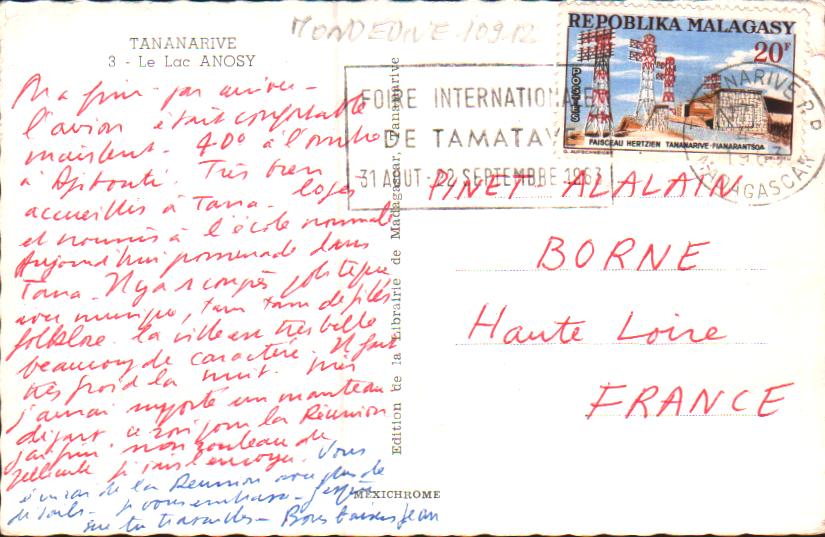 TANANARIVE
3 - Le Lac ANOSY
On a fini par arriver -
l'avion était confortable
mais lent - 40° à l'ombre
à Djibouti. Très bien
accueillis à Tana - logés
et nourris à l'école normale
Aujourd'hui promenade dans
Tana. Il y a congrès politique
avec musique, tam tam défilés
folklore. la ville est très belle
beaucoup de caractère. Il fait
très froid la nuit.
j'aurai apporté un manteau
départ ce soir pour la Réunion
j'ai fini mon rouleau de
pellicule je vais l'envoyer. Vous
de la Réunion avec plus de
détails - je vous embrasse - J'espère
que tu travailles - Bons baisers Jean
Edition de la Librairie de Madagascar, Tananarive
MEXICHROME
109.12
REPOBLIKA MALAGASY
20F
POSTES
FAISCEAU HERTZIEN TANANARIVE-FIANARANTSOA
FOIRE INTERNATIONALE
DE TAMATAVE
31 AOUT - 22 SEPTEMBRE 1963
TANANARIVE R.P.
MADAGASCAR
PINET ALALAIN
BORNE
Haute Loire
FRANCE